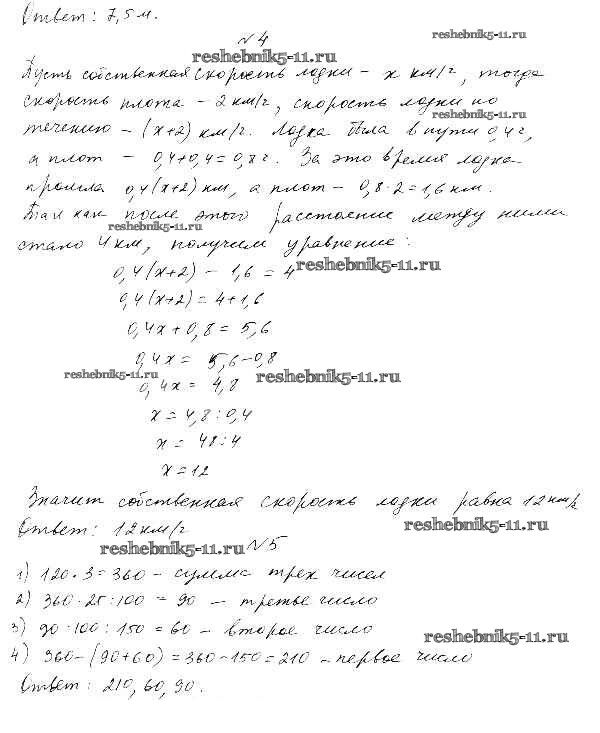 Ответ: 7,5 м.
reshebnik5-11.ru
№ 4
reshebnik5-11.ru
Пусть собственная скорость лодки - x км/г, тогда
скорость плота - 2 км/г, скорость лодки по
reshebnik5-11.ru
течению - (x+2) км/г. Лодка была в пути 0,4 г,
а плот - 0,4+0,4=0,8 г. За это время лодка
прошла 0,4(x+2) км, а плот - 0,8·2=1,6 км.
Так как после этого расстояние между ними
reshebnik5-11.ru
стало 4 км, получим уравнение:
0,4(x+2) - 1,6 = 4
reshebnik5-11.ru
0,4(x+2) = 4+1,6
0,4x + 0,8 = 5,6
0,4x = 5,6-0,8
reshebnik5-11.ru
reshebnik5-11.ru
0,4x = 4,8
x = 4,8 : 0,4
x = 48:4
x = 12
Значит собственная скорость лодки равна 12 км/г
Ответ: 12 км/г
reshebnik5-11.ru
reshebnik5-11.ru
№5
1) 120·3=360 - сумма трех чисел
2) 360·25:100 = 90 - третье число
3) 90·100:150 = 60 - второе число
reshebnik5-11.ru
4) 360-(90+60)=360-150=210 - первое число
Ответ: 210, 60, 90.